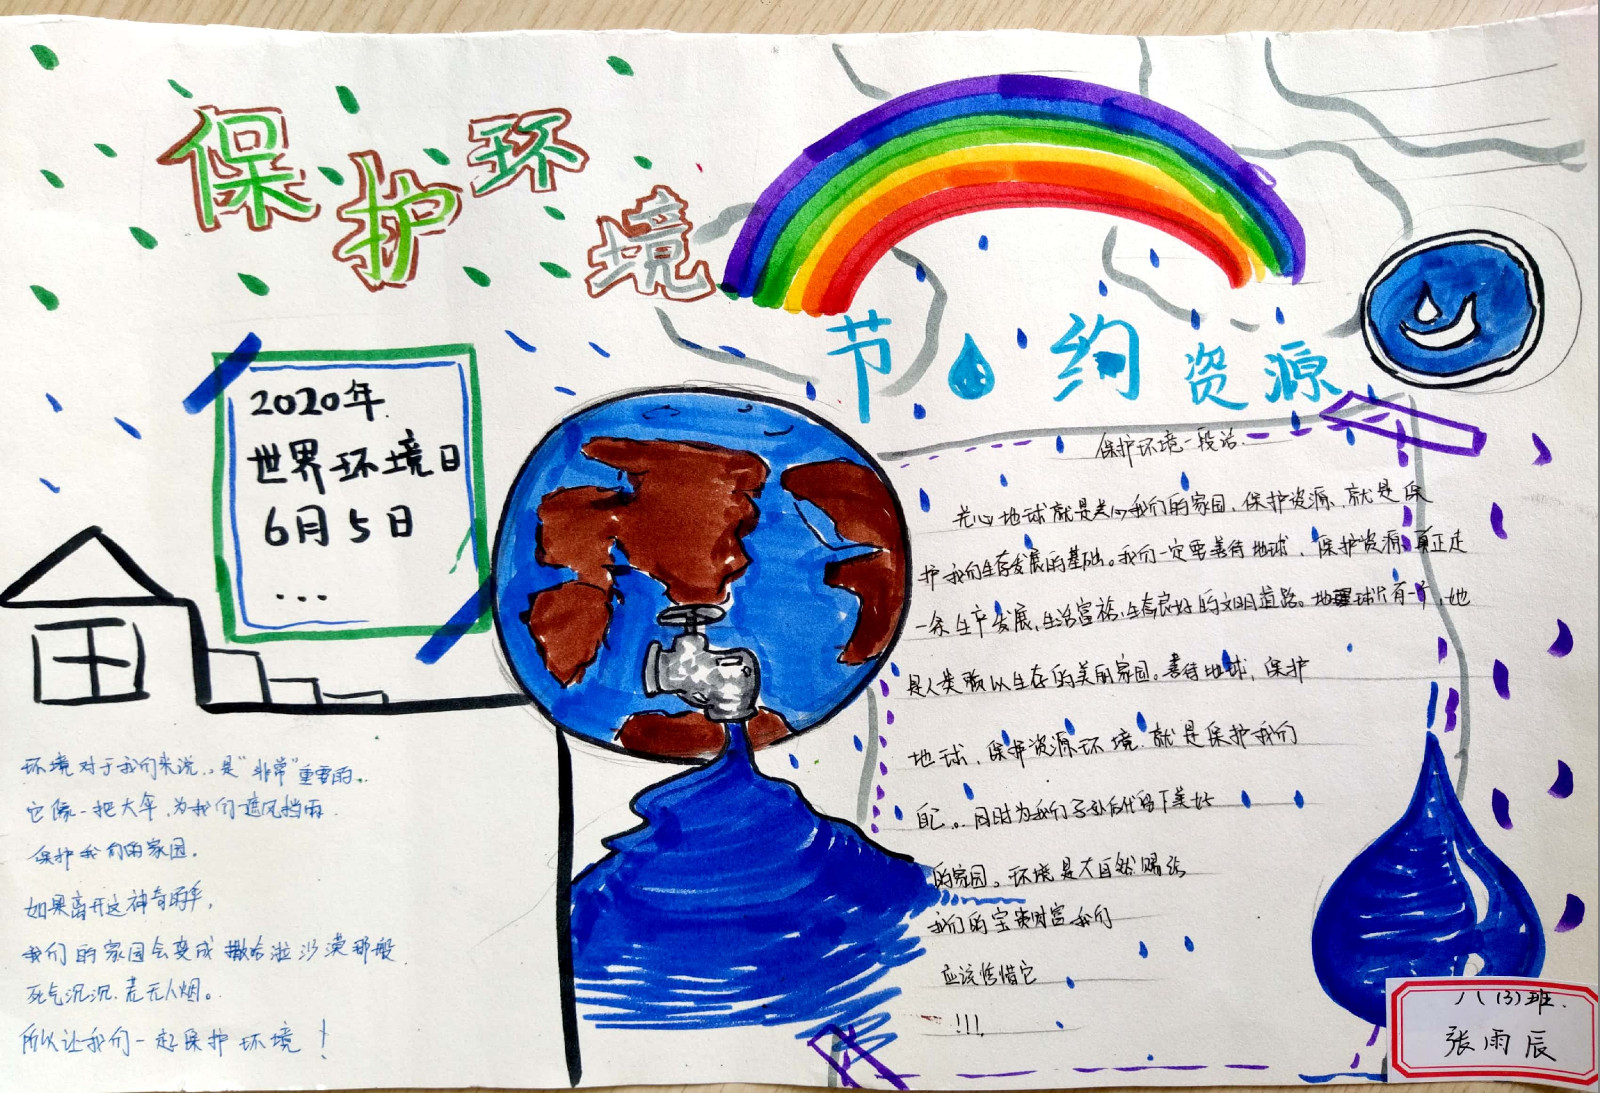 保护环境
节约资源
2020年
世界环境日
6月5日
...
保护环境一段话.
关心地球就是关心我们的家园、保护资源、就是保
护我们生存发展的基础。我们一定要善待地球、保护资源、真正走
一条生产发展、生活富裕、生态良好的文明道路。地球只有一个,她
是人类赖以生存的美丽家园。善待地球,保护
地球、保护资源环境、就是保护我们
自己。同时为我们子孙后代留下美好
的家园。环境是大自然赐给
我们的宝贵财富我们
应该珍惜它
!!!
环境对于我们来说,是"非常"重要的.
它像一把大伞,为我们遮风挡雨.
保护我们的家园.
如果离开这神奇的伞,
我们的家园会变成撒哈拉沙漠那般
死气沉沉、荒无人烟。
所以让我们一起保护环境!
八(3)班.
张雨辰